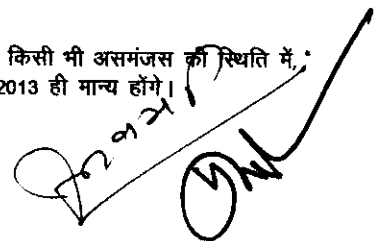 किसी भी असमंजस की स्थिति में,
2013 ही मान्य होंगे।